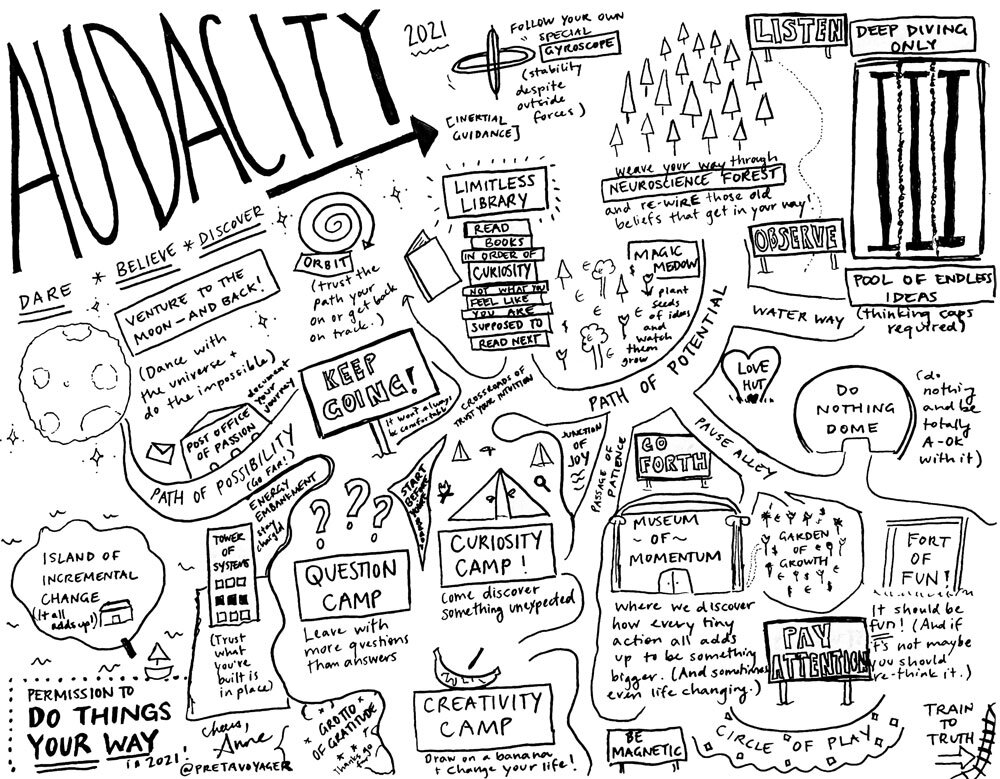 AUDACITY
2021
FOLLOW YOUR OWN
SPECIAL
GYROSCOPE
(stability
despite
outside
forces)
[INERTIAL
GUIDANCE]
LISTEN
DEEP DIVING
ONLY
weave your way through
NEUROSCIENCE FOREST
and re-WIRE those old
beliefs that get in your way!
OBSERVE
POOL OF ENDLESS
IDEAS
(thinking caps
required)
WATER WAY
DARE * BELIEVE * DISCOVER
VENTURE TO THE
MOON—AND BACK!
(Dance with
the universe +
do the impossible)
ORBIT
(trust the
path your
on or get back
on track.)
LIMITLESS
LIBRARY
READ
BOOKS
IN ORDER OF
CURIOSITY
NOT WHAT YOU
FEEL LIKE
YOU ARE
SUPPOSED TO
READ NEXT
MAGIC
MEDOW
plant
seeds
of ideas
and
watch
them
grow
PATH OF POTENTIAL
KEEP
GOING!
It won't always
be comfortable
CROSSROADS OF
TRUST YOUR INTUITION
POST OFFICE
OF PASSION
document
your
journey
PATH OF POSSIBILITY
(GO FAR!)
ENERGY
EMBANKMENT
stay
charged
LOVE
HUT
DO
NOTHING
DOME
(do
nothing
and be
totally
A-OK
with it)
PAUSE ALLEY
JUNCTION
OF
JOY
PASSAGE OF
PATIENCE
GO
FORTH
START
BEFORE
ISLAND OF
INCREMENTAL
CHANGE
(It all
adds up!)
TOWER
OF
SYSTEMS
(Trust
what
you've
built is
in place)
QUESTION
CAMP
Leave with
more questions
than answers
CURIOSITY
CAMP!
Come discover
something unexpected
MUSEUM
~OF~
MOMENTUM
where we discover
how every tiny
action all adds
up to be something
bigger. (And sometimes
even life changing.)
GARDEN
OF
GROWTH
FORT
OF
FUN!
It should be
fun! (And if
it's not maybe
you should
re-think it.)
PAY
ATTENTION
CIRCLE OF PLAY
BE
MAGNETIC
TRAIN
TO
TRUTH
CREATIVITY
CAMP
Draw on a banana
+ change your life!
GROTTO
OF GRATITUDE
Thanks
PERMISSION TO
DO THINGS
YOUR WAY
in 2021!
cheers,
Anne
@PRETAVOYAGER